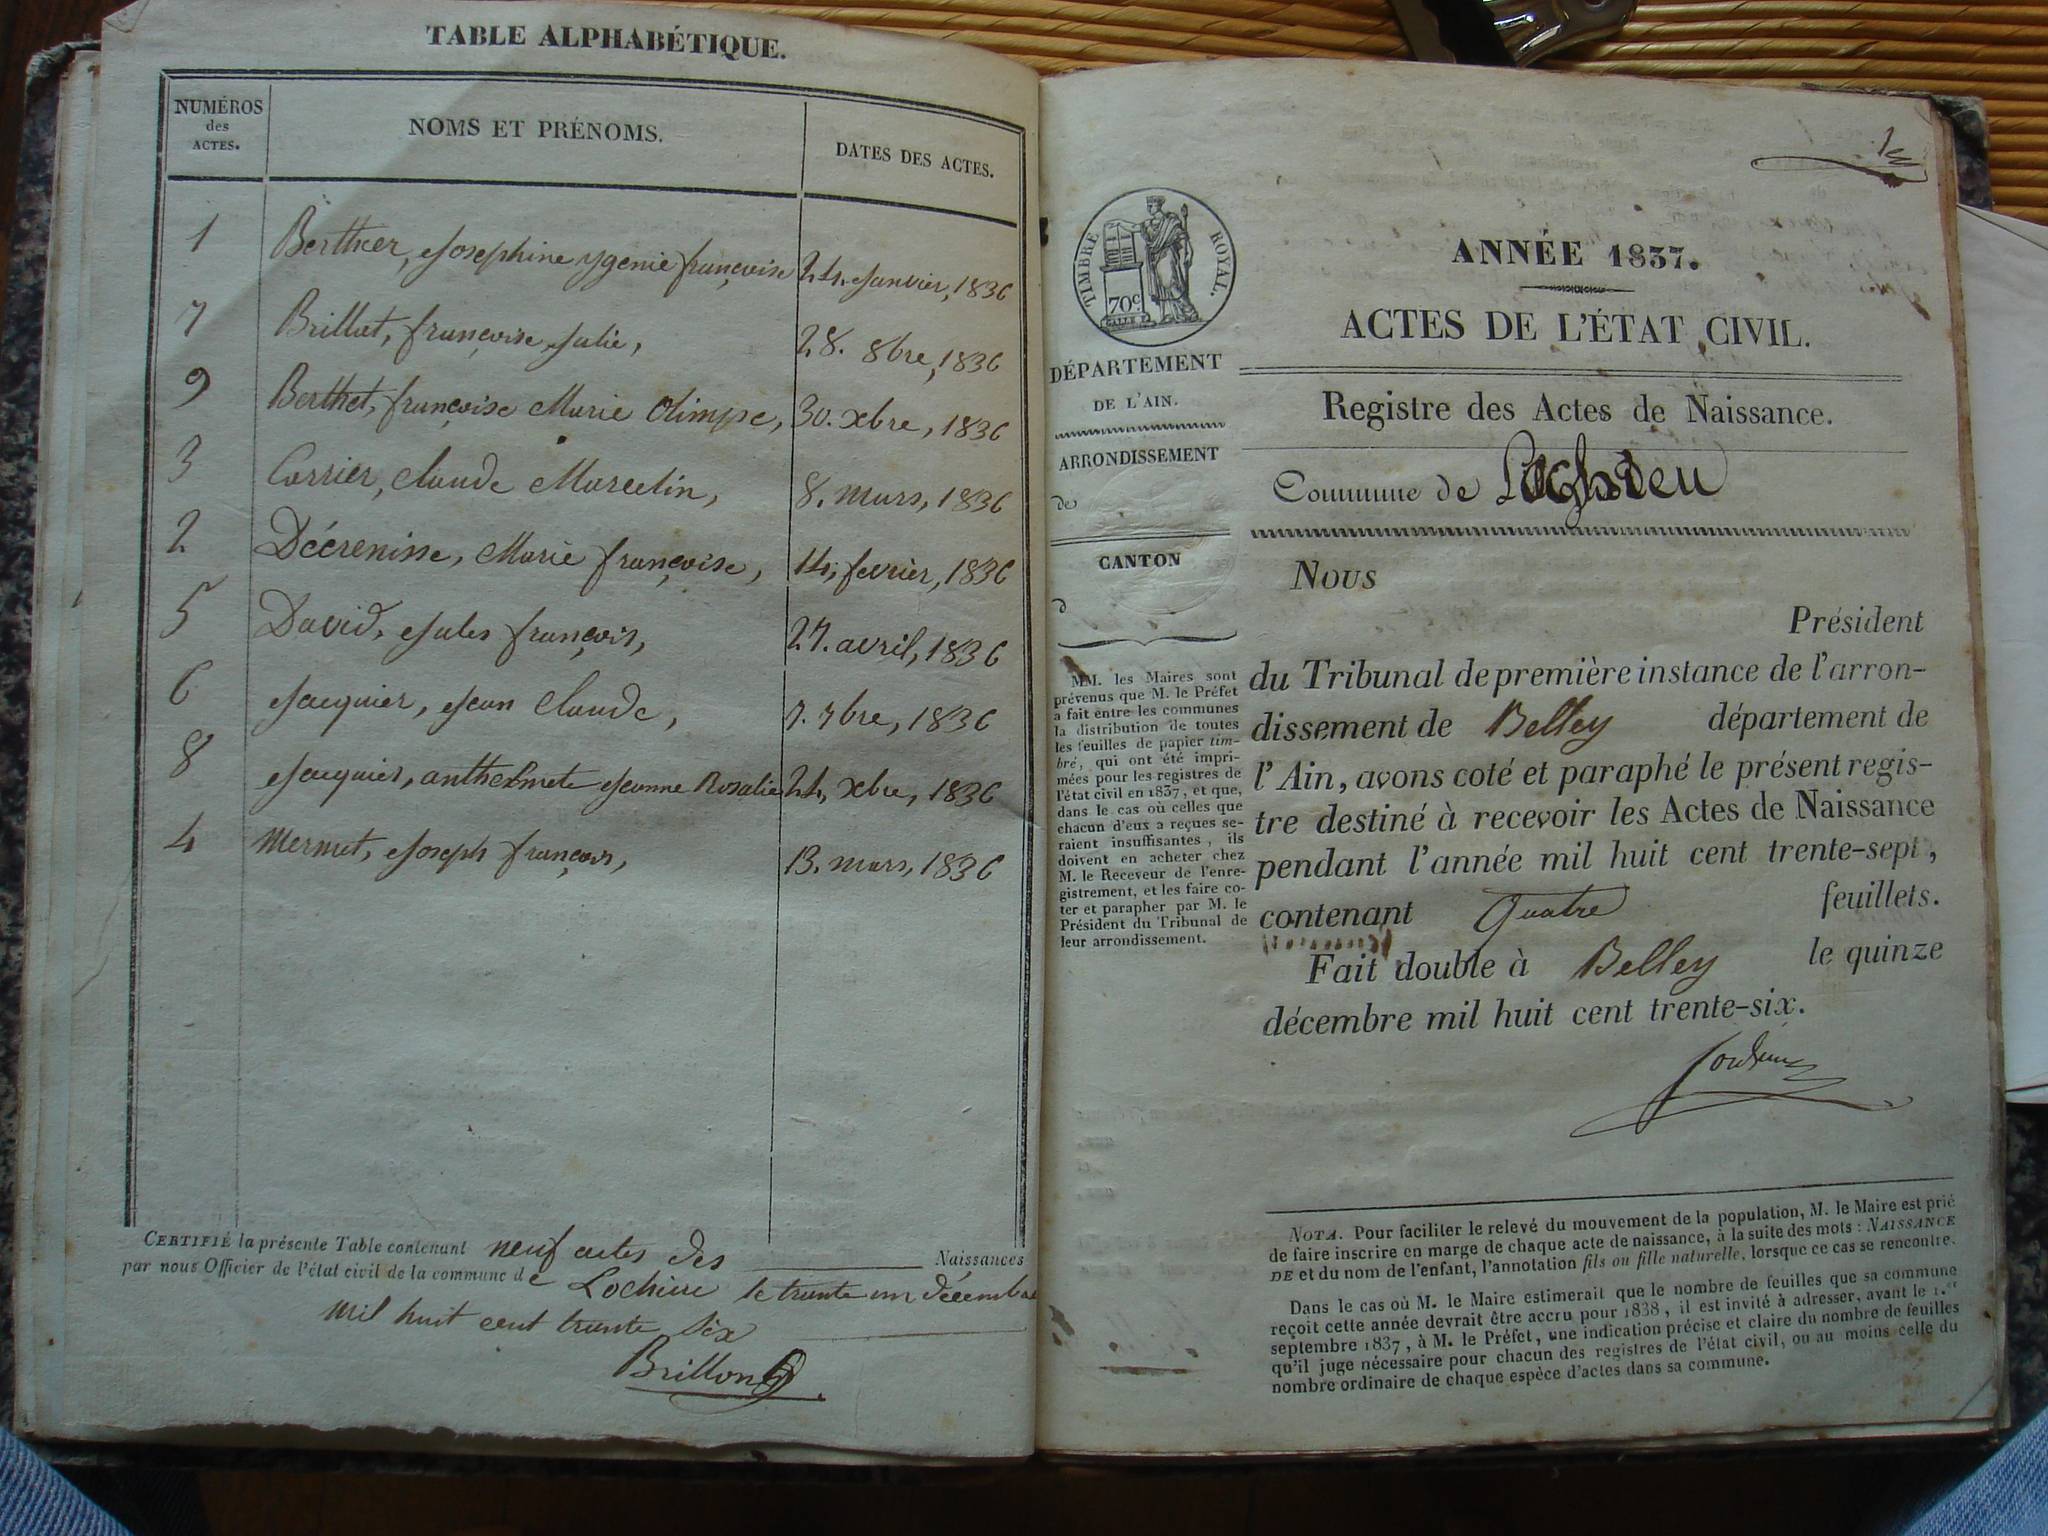 TABLE ALPHABÉTIQUE.
NUMÉROS
des
ACTES.
NOMS ET PRÉNOMS.
DATES DES ACTES.
1 Berthier, Josephine ygenie françoise 24. Janvier, 1836
7 Brillat, françoise Julie, 28. 8bre, 1836
9 Berthet, françoise Marie Olimpe, 30. xbre, 1836
3 Carrier, Claude Marcelin, 8. mars, 1836
2 Décrenisse, Marie françoise, 14, fevrier, 1836
5 David, Jules françois, 27. avril, 1836
6 Jacquier, Jean Claude, 7. 7bre, 1836
8 Jacquier, anthelmete Jeanne Rosalie 24, xbre, 1836
4 Mermet, Joseph françois, 13. mars, 1836
CERTIFIÉ la présente Table contenant neuf actes des Naissances
par nous Officier de l'état civil de la commune de Lochieu le trente un décembre
mil huit cent trente six
Brillon
1er
TIMBRE ROYAL.
70c
ANNÉE 1837.
ACTES DE L'ÉTAT CIVIL.
DÉPARTEMENT
DE L'AIN.
ARRONDISSEMENT
de
CANTON
d
Registre des Actes de Naissance.
Commune de Lochieu
MM. les Maires sont
prévenus que M. le Préfet
a fait entre les communes
la distribution de toutes
les feuilles de papier tim-
bré, qui ont été impri-
mées pour les registres de
l'état civil en 1837, et que,
dans le cas où celles que
chacun d'eux a reçues se-
raient insuffisantes, ils
doivent en acheter chez
M. le Receveur de l'enre-
gistrement, et les faire co-
ter et parapher par M. le
Président du Tribunal de
leur arrondissement.
Nous
Président
du Tribunal de première instance de l'arron-
dissement de Belley département de
l'Ain, avons coté et paraphé le présent regis-
tre destiné à recevoir les Actes de Naissance
pendant l'année mil huit cent trente-sept,
contenant Quatre feuillets.
Fait double à Belley le quinze
décembre mil huit cent trente-six.
NOTA. Pour faciliter le relevé du mouvement de la population, M. le Maire est prié
de faire inscrire en marge de chaque acte de naissance, à la suite des mots : NAISSANCE
DE et du nom de l'enfant, l'annotation fils ou fille naturelle, lorsque ce cas se rencontre.
Dans le cas où M. le Maire estimerait que le nombre de feuilles que sa commune
reçoit cette année devrait être accru pour 1838, il est invité à adresser, avant le 1.er
septembre 1837, à M. le Préfet, une indication précise et claire du nombre de feuilles
qu'il juge nécessaire pour chacun des registres de l'état civil, ou au moins celle du
nombre ordinaire de chaque espèce d'actes dans sa commune.